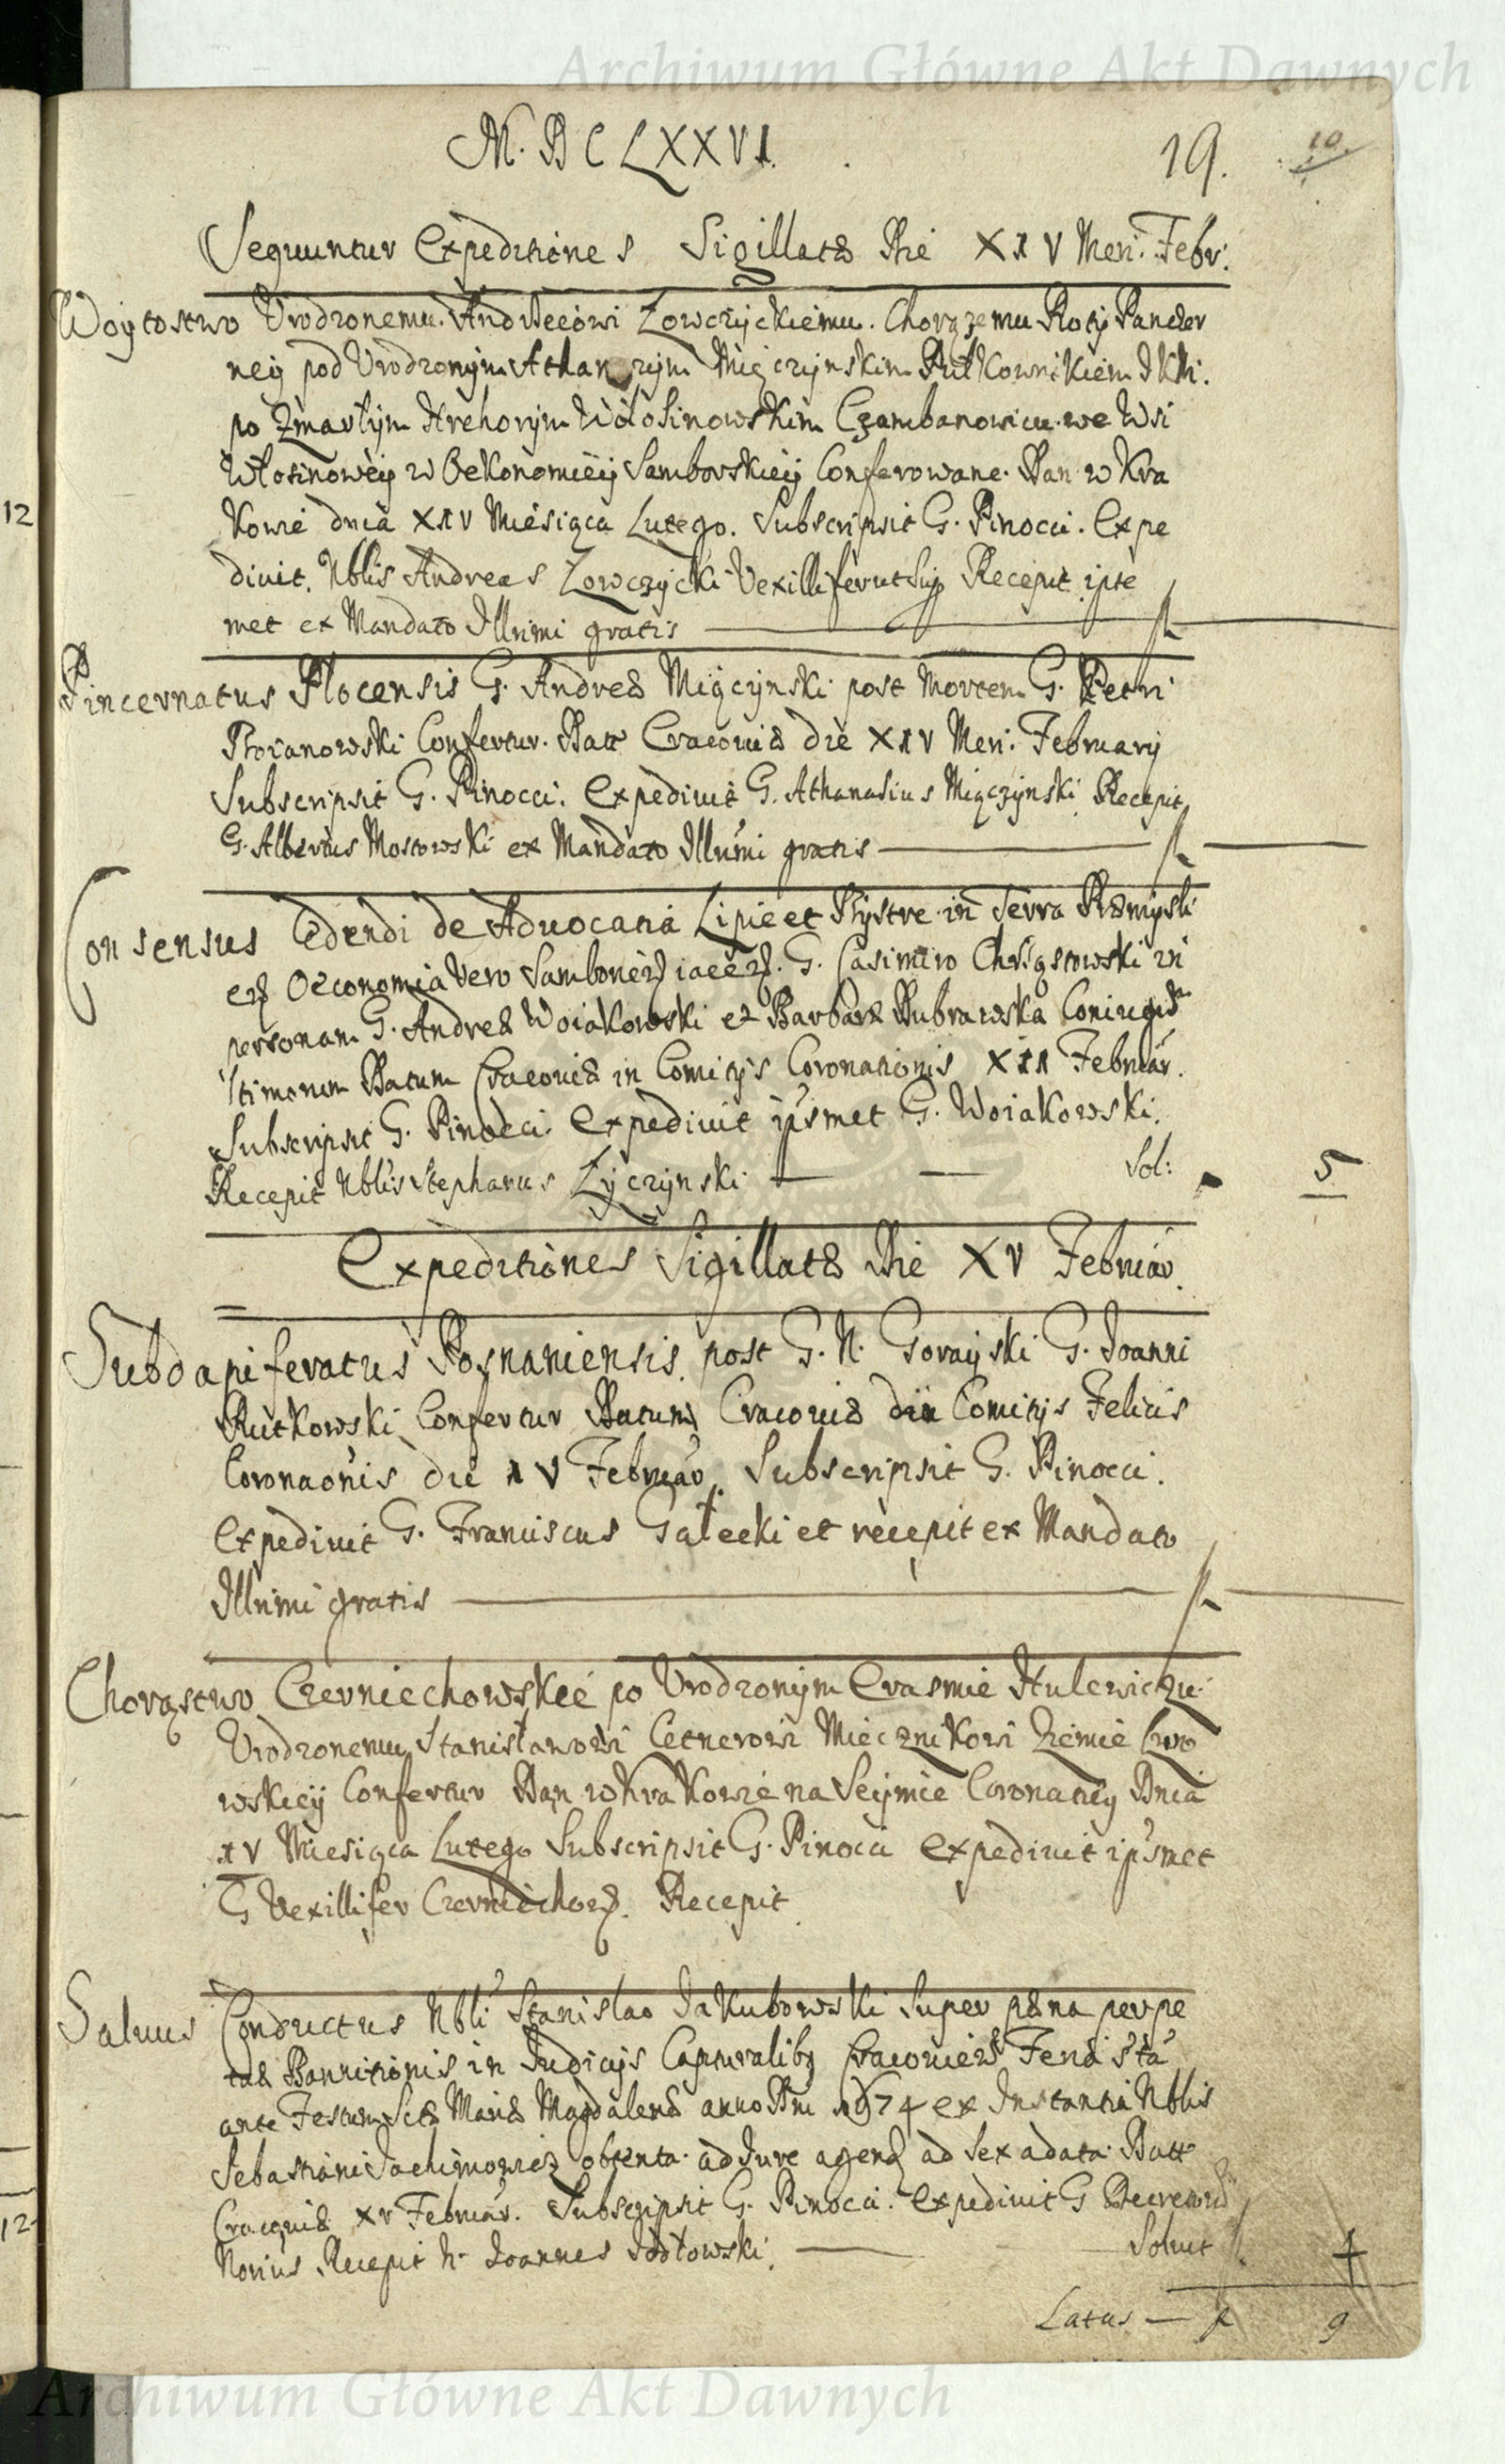 Archiwum Główne Akt Dawnych
M. DC LXXVI.
19.
10.
Sequuntur Expeditiones Sigillatæ Die XIV Men: Febr:
Woytostwo Urodzonemu Andrzeiowi Zowczyckiemu. Chorążemu Roty Pancer
ney pod Urodzonym Athanazym Miączynskim Pułkownikiem JKM.
po Zmarłym Hrehorym Wołosinowskim Czambanowicu we Wsi
Włosinowey w Oekonomiey Samborskiey Conferowane. Dan w Kra
kowie dnia XIV Miesiąca Lutego. Subscripsit G. Pinocci. Expe
diuit Nblis Andreas Zowczycki Vexillifer ut Sup Recepit ipse
met ex Mandato Illrimi gratis
12
Pincernatus Plocensis G. Andreæ Miączynski post Mortem G. Petri
Confertur. Datt Cracouiæ die XIV Men: Februarij
Subscripsit G. Pinocci. Expediuit G. Athanasius Miączynski Recepit
G. Albertus Mostowski ex Mandato Illrimi gratis
Consensus Cedendi de Aduocatia Lipie et Bystre in Terra Præmysli
Oeconomia Vero G. Casimiro Chrząstowski in
personam G. Andreæ Woiakowski et Barbaræ Dubrawska Coniugis
Datum Cracouiæ in Comitijs Coronationis XIII Februar.
Subscripsit G. Pinocci Expediuit ipsmet G. Woiakowski.
Recepit Nblis Stephanus Zyczynski Sol: 5
Expeditiones Sigillatæ Die XV Februar.
Subdapiferatus Posnaniensis post G. N. Gorayski G. Joanni
Rutkowski Confertur Datum Cracouiæ Comitijs Felicis
Coronaonis die XV Februar. Subscripsit G. Pinocci.
Expediuit G. Franciscus Gałecki et recepit ex Mandato
Illrimi gratis
Chorąstwo Czerniechowskie po Urodzonym Erasmie Hulewiczu
Urodzonemu Stanisławowi Cetnerowi Miecznikowi Ziemie Lwo
wskiey Confertur Dan w Krakowie na Seymie Coronatiey Dnia
XV Miesiąca Lutego Subscripsit G. Pinocci Expediuit ipsmet
G Vexillifer Recepit
Saluus Conductus Nbli Stanislao Jakubowski Super pæna perpe
tuæ Bannitionis in Judicijs Capturalibq Feria
ante Festum Sctæ Mariæ Magdalenæ anno Dni 1674 ex Instantia Nblis
Sebastiani obtenta ad Jure agend ad Sex adata Datt
Cracouiæ XV Februar. Subscripsit G. Pinocci. Expediuit G
Recepit N. Joannes Jodłowski. Soluit 4
12
Latus 9
Archiwum Główne Akt Dawnych